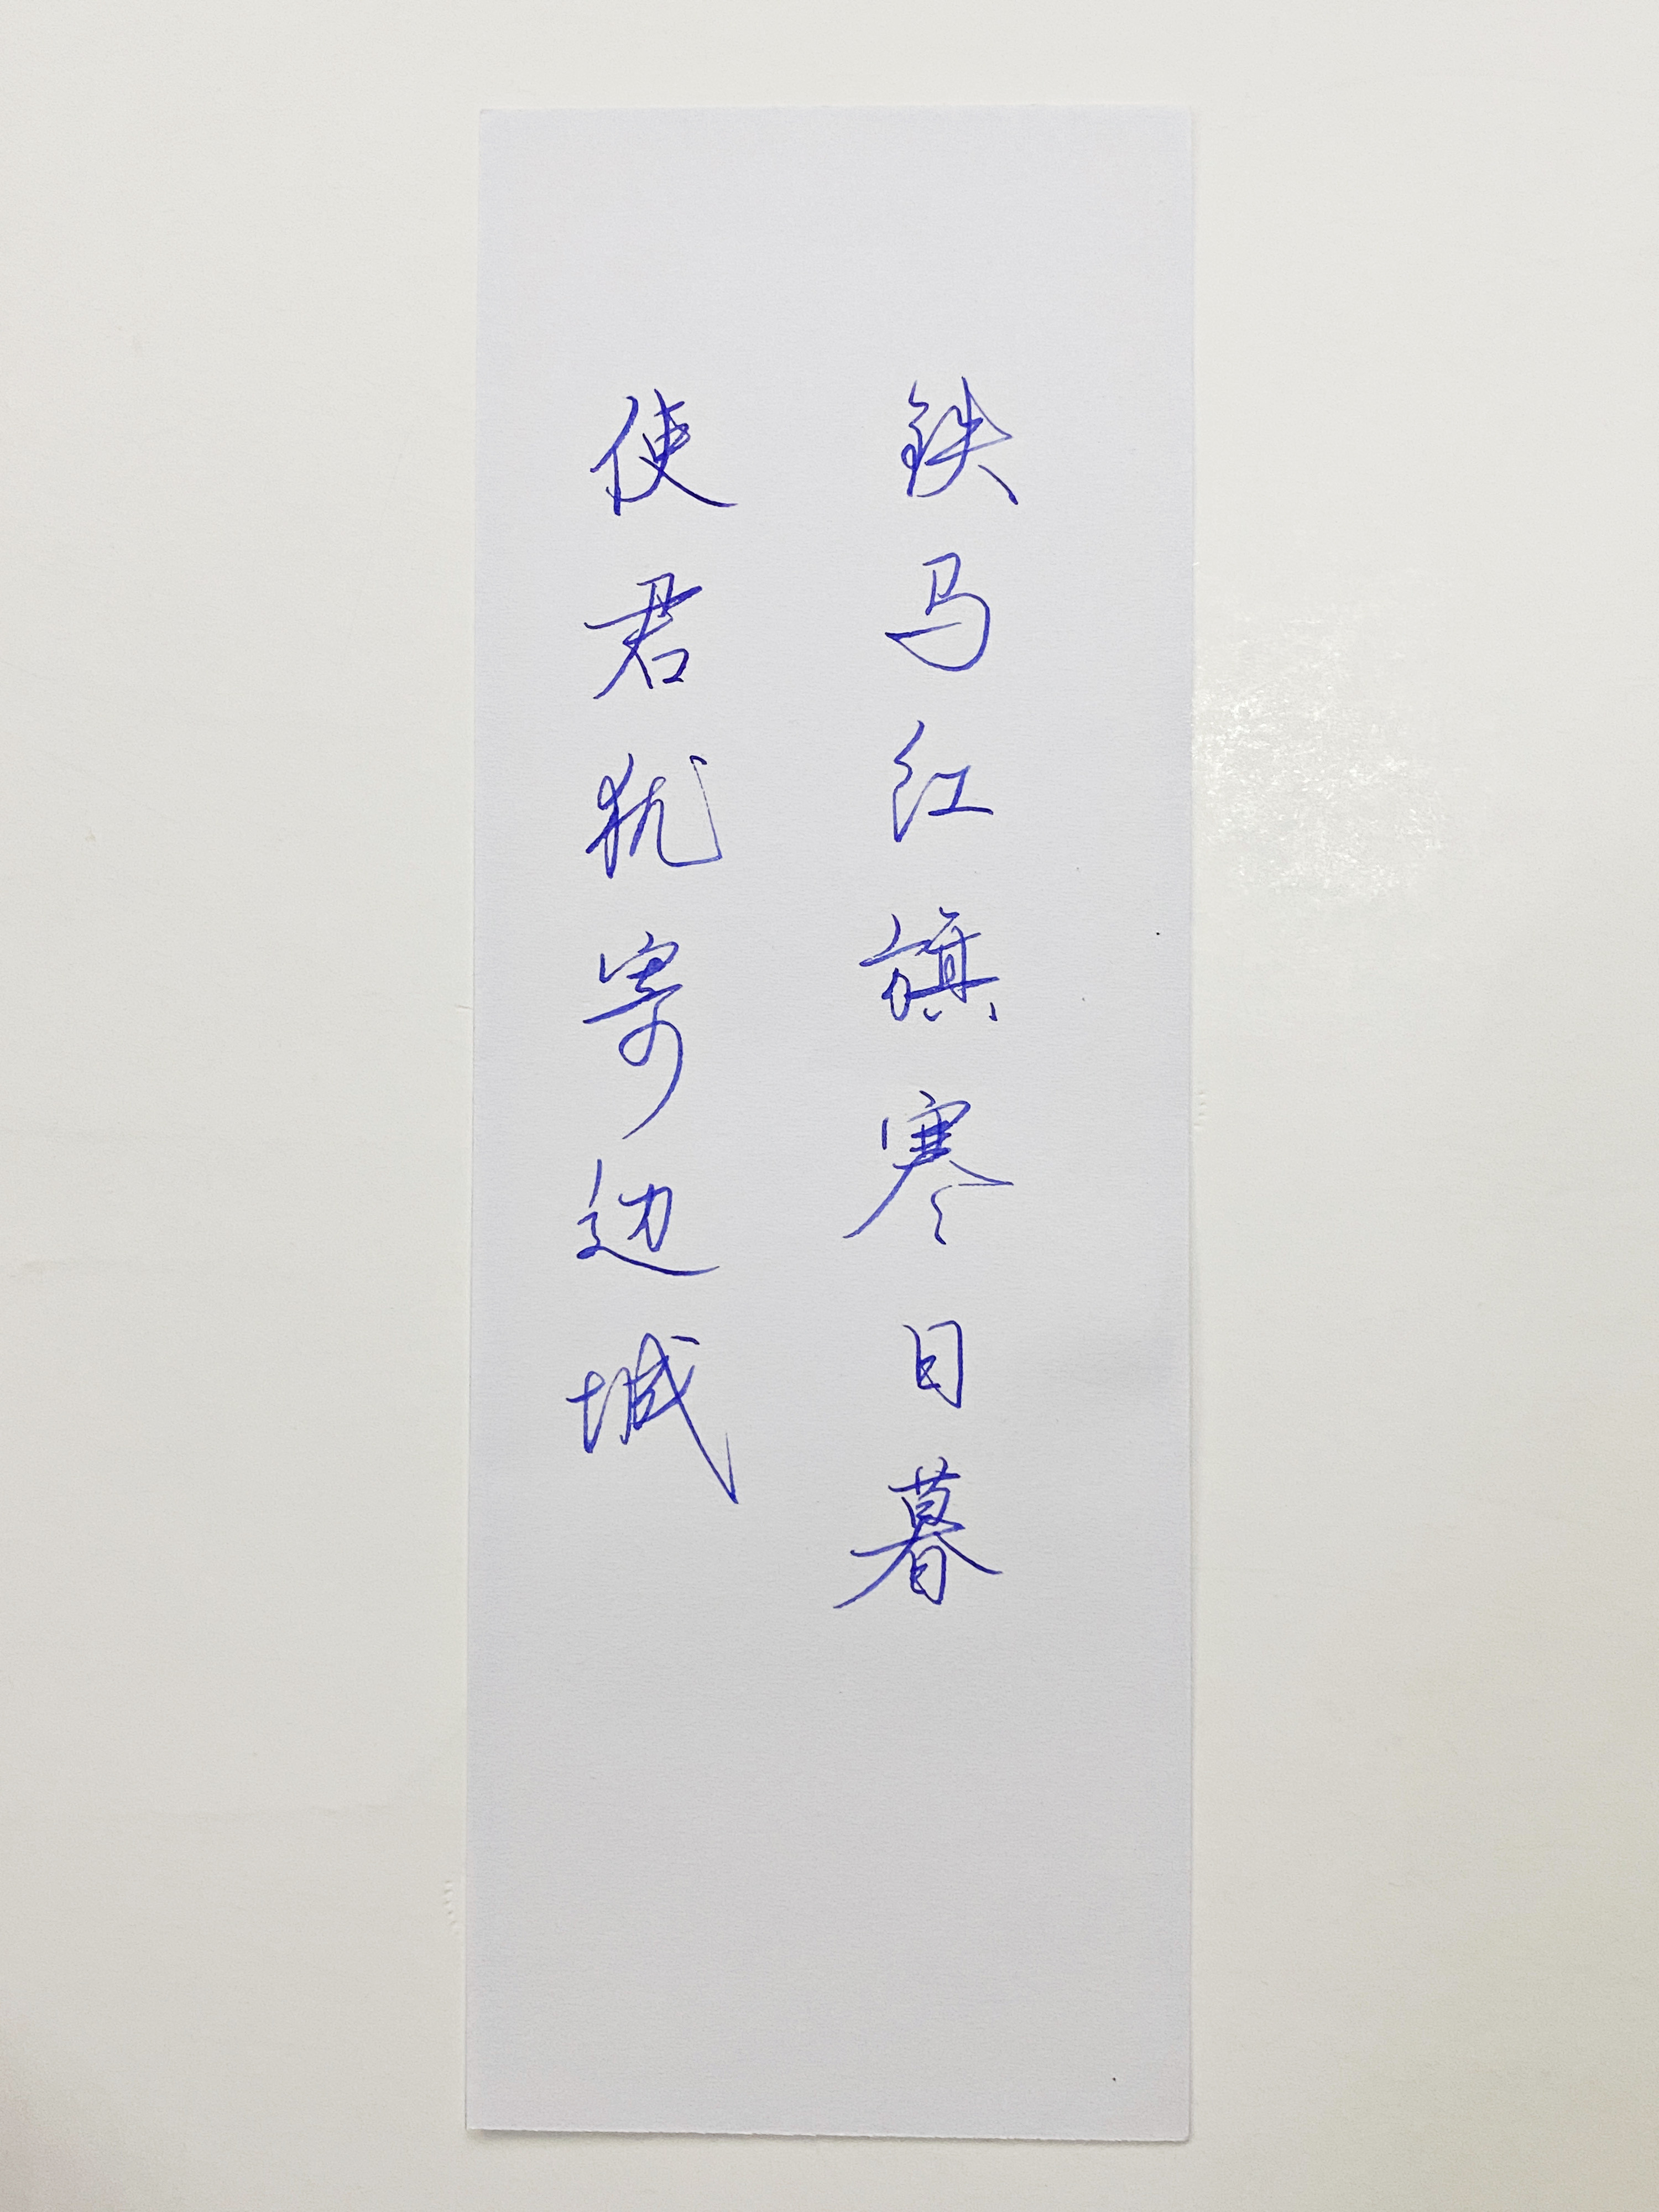 铁马红旗寒日暮
使君犹寄边城